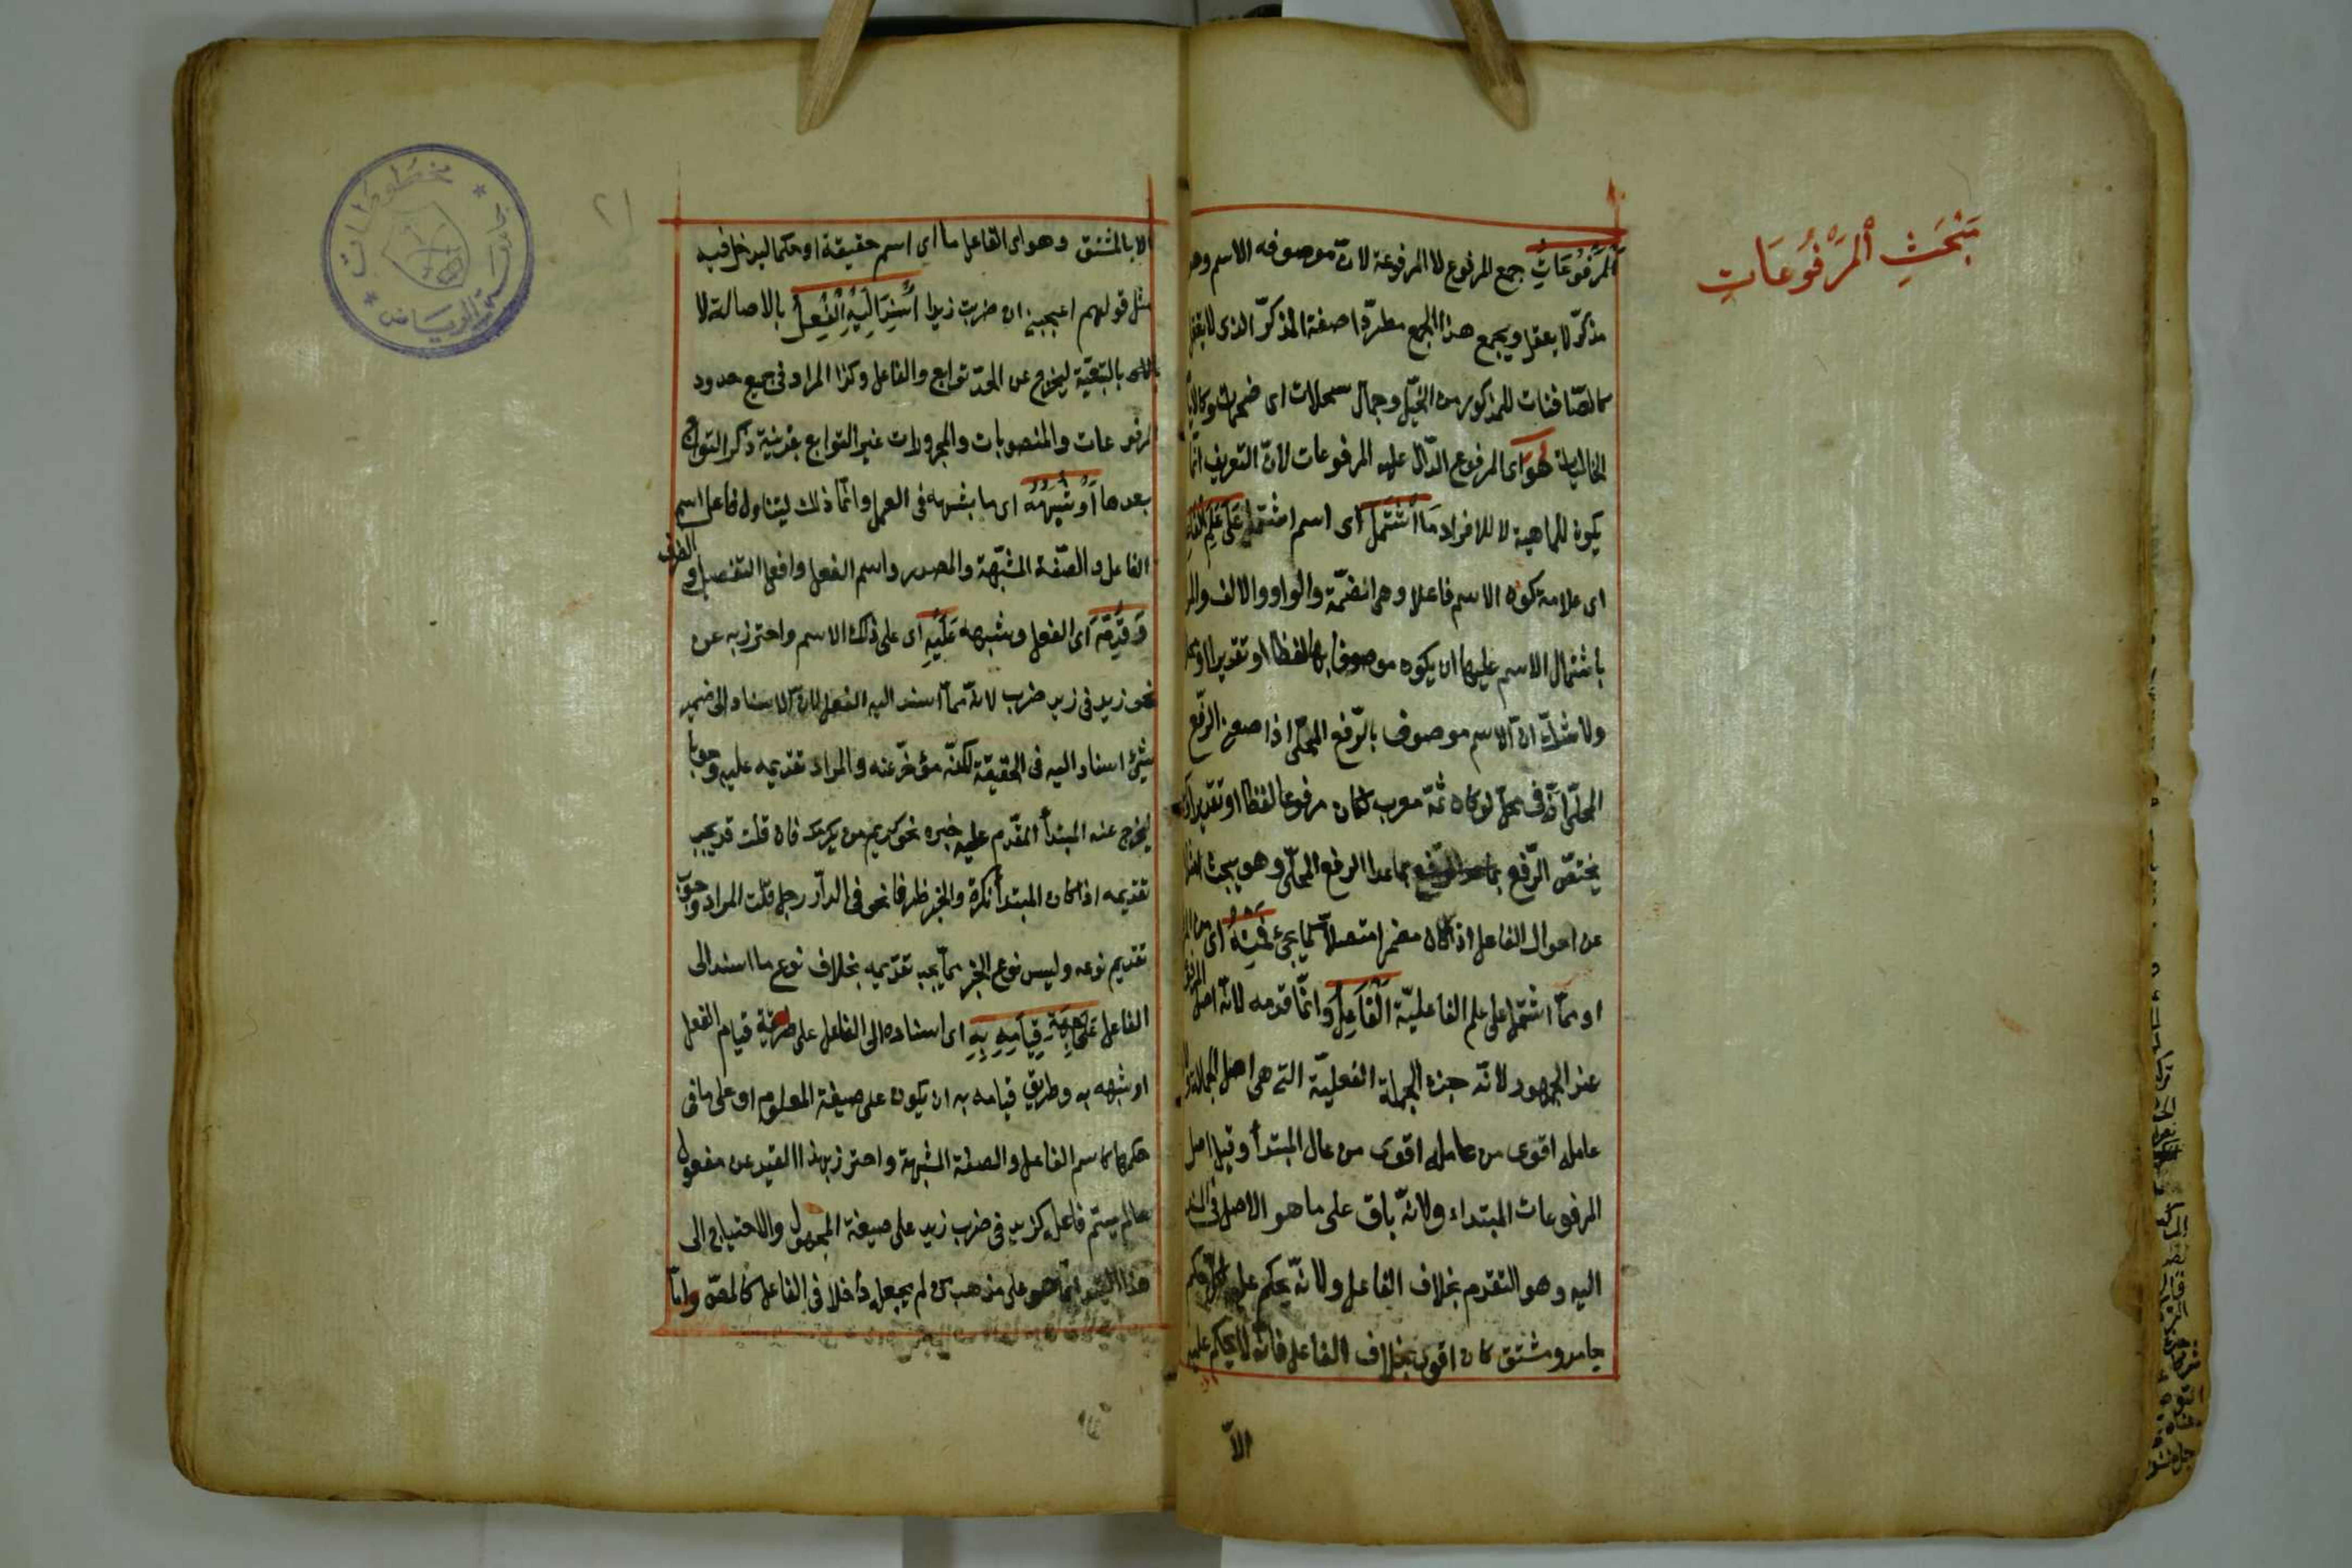 مَبْحَثِ ٱلمَرْفُوعَاتِ
المَرْفُوعَاتِ جمع المرفوع لا المرفوعة لانّ موصوفه الاسم وهو
مذكّر لا يعقل ويجمع هذا الجمع مطرّدا صفة المذكّر الذى لا يعقل
كالصّافنات للمذكور من الخيل وجمال سبحلات اى ضخمات وكالايّام
الخاليات هُوَ اى المرفوع الدّال عليه المرفوعات لانّ التعريف انّما
يكون للماهية لا للافراد مَا اشْتَمَلَ اى اسم اشتمل عَلَى عَلَمِ الفَاعِلِيَّة
اى علامة كون الاسم فاعلا وهى الضمّة والواو والالف والمراد
باشتمال الاسم عليها ان يكون موصوفا بها لفظا او تقديرا او محلا
ولا شكّ انّ الاسم موصوف بالرّفع المحلّى اذ معنى الرّفع
المحلّى انّه فى محلّ لو كان ثمّة معرب لكان مرفوعا لفظا او تقديرا وكيف
يختصّ الرّفع بما عدا الرفع المحلّى وهو يبحث مثلا
عن احوال الفاعل اذا كان مضمرا متصلا كما يجئ فَمِنْهُ اى من المرفوع
او ممّا اشتمل على علم الفاعليّة اَلْفَاعِلُ وانّما قدمه لانّه اصل المرفوعات
عند الجمهور لانّه جزء الجملة الفعليّة التى هى اصل الجمل ولانّ
عامله اقوى من عامله اقوى من عامل المبتدأ وقيل اصل
المرفوعات المبتداء ولانّه باق على ما هو الاصل فى المسند
اليه وهو التقدم بخلاف الفاعل ولانّه يحكم عليه بكلّ حكم
جامد ومشتق كان اقوى بخلاف الفاعل فانّه لا يحكم عليه
الاّ
٢١
الا بالمشتق وهو اى الفاعل ما اى اسم حقيقة او حكما ليدخل فيه
مثل قولهم اعجبنى ان ضربت زيدا اُسْنِدَ اِلَيْهِ الْفِعْلُ بالاصالة لا
بالتبعيّة ليخرج عن الحدّ توابع والفاعل وكذا المراد فى جميع حدود
المرفوعات والمنصوبات والمجرورات غير التوابع بقرينة ذكر التوابع
بعدها اَوْ شِبْهُهُ اى ما يشبهه فى العمل وانّما ذلك ليتناول فاعل اسم
الفاعل والصّفة المشبّهة والمصدر واسم الفعل وافعل التفضيل والظرف
وَقُدِّمَ اى الفعل وشبهه عَلَيْهِ اى على ذلك الاسم واحترز به عن
نحو زيد فى زيد ضرب لانّه ممّا اسند اليه الفعل لانّ الاسناد الى ضمير
شئ اسناد اليه فى الحقيقة لكنّه مؤخّر عنه والمراد تقديمه عليه وجوبا
ليخرج عنه المبتدأ المقدّم عليه خبره نحو كريم من يكرمك فان قلت قد يجب
تقديمه اذا كان المبتدأ نكرة والخبر ظرفا نحو فى الدّار رجل قلت المراد وجوب
تقديم نوعه وليس نوع الخبر ممّا يجب تقديمه بخلاف نوع ما اسند الى
الفاعل عَلَى جِهَةِ قِيَامِهِ بِهِ اى اسناده الى الفاعل على طريقة قيام الفعل
او شبهه به وطريق قيامه به ان يكون على صيغة المعلوم او على ما فى
حكمها كاسم الفاعل والصفة المشبهة واحترز بهذا القيد عن مفعول
ما لم يسمّ فاعله كزيد فى ضرب زيد على صيغة المجهول والاحتياج الى
هذا القيد انّما هو على مذهب من لم يجعله داخلا فى الفاعل كالمصّ وامّا
مخطوطات
جامعة الرياض